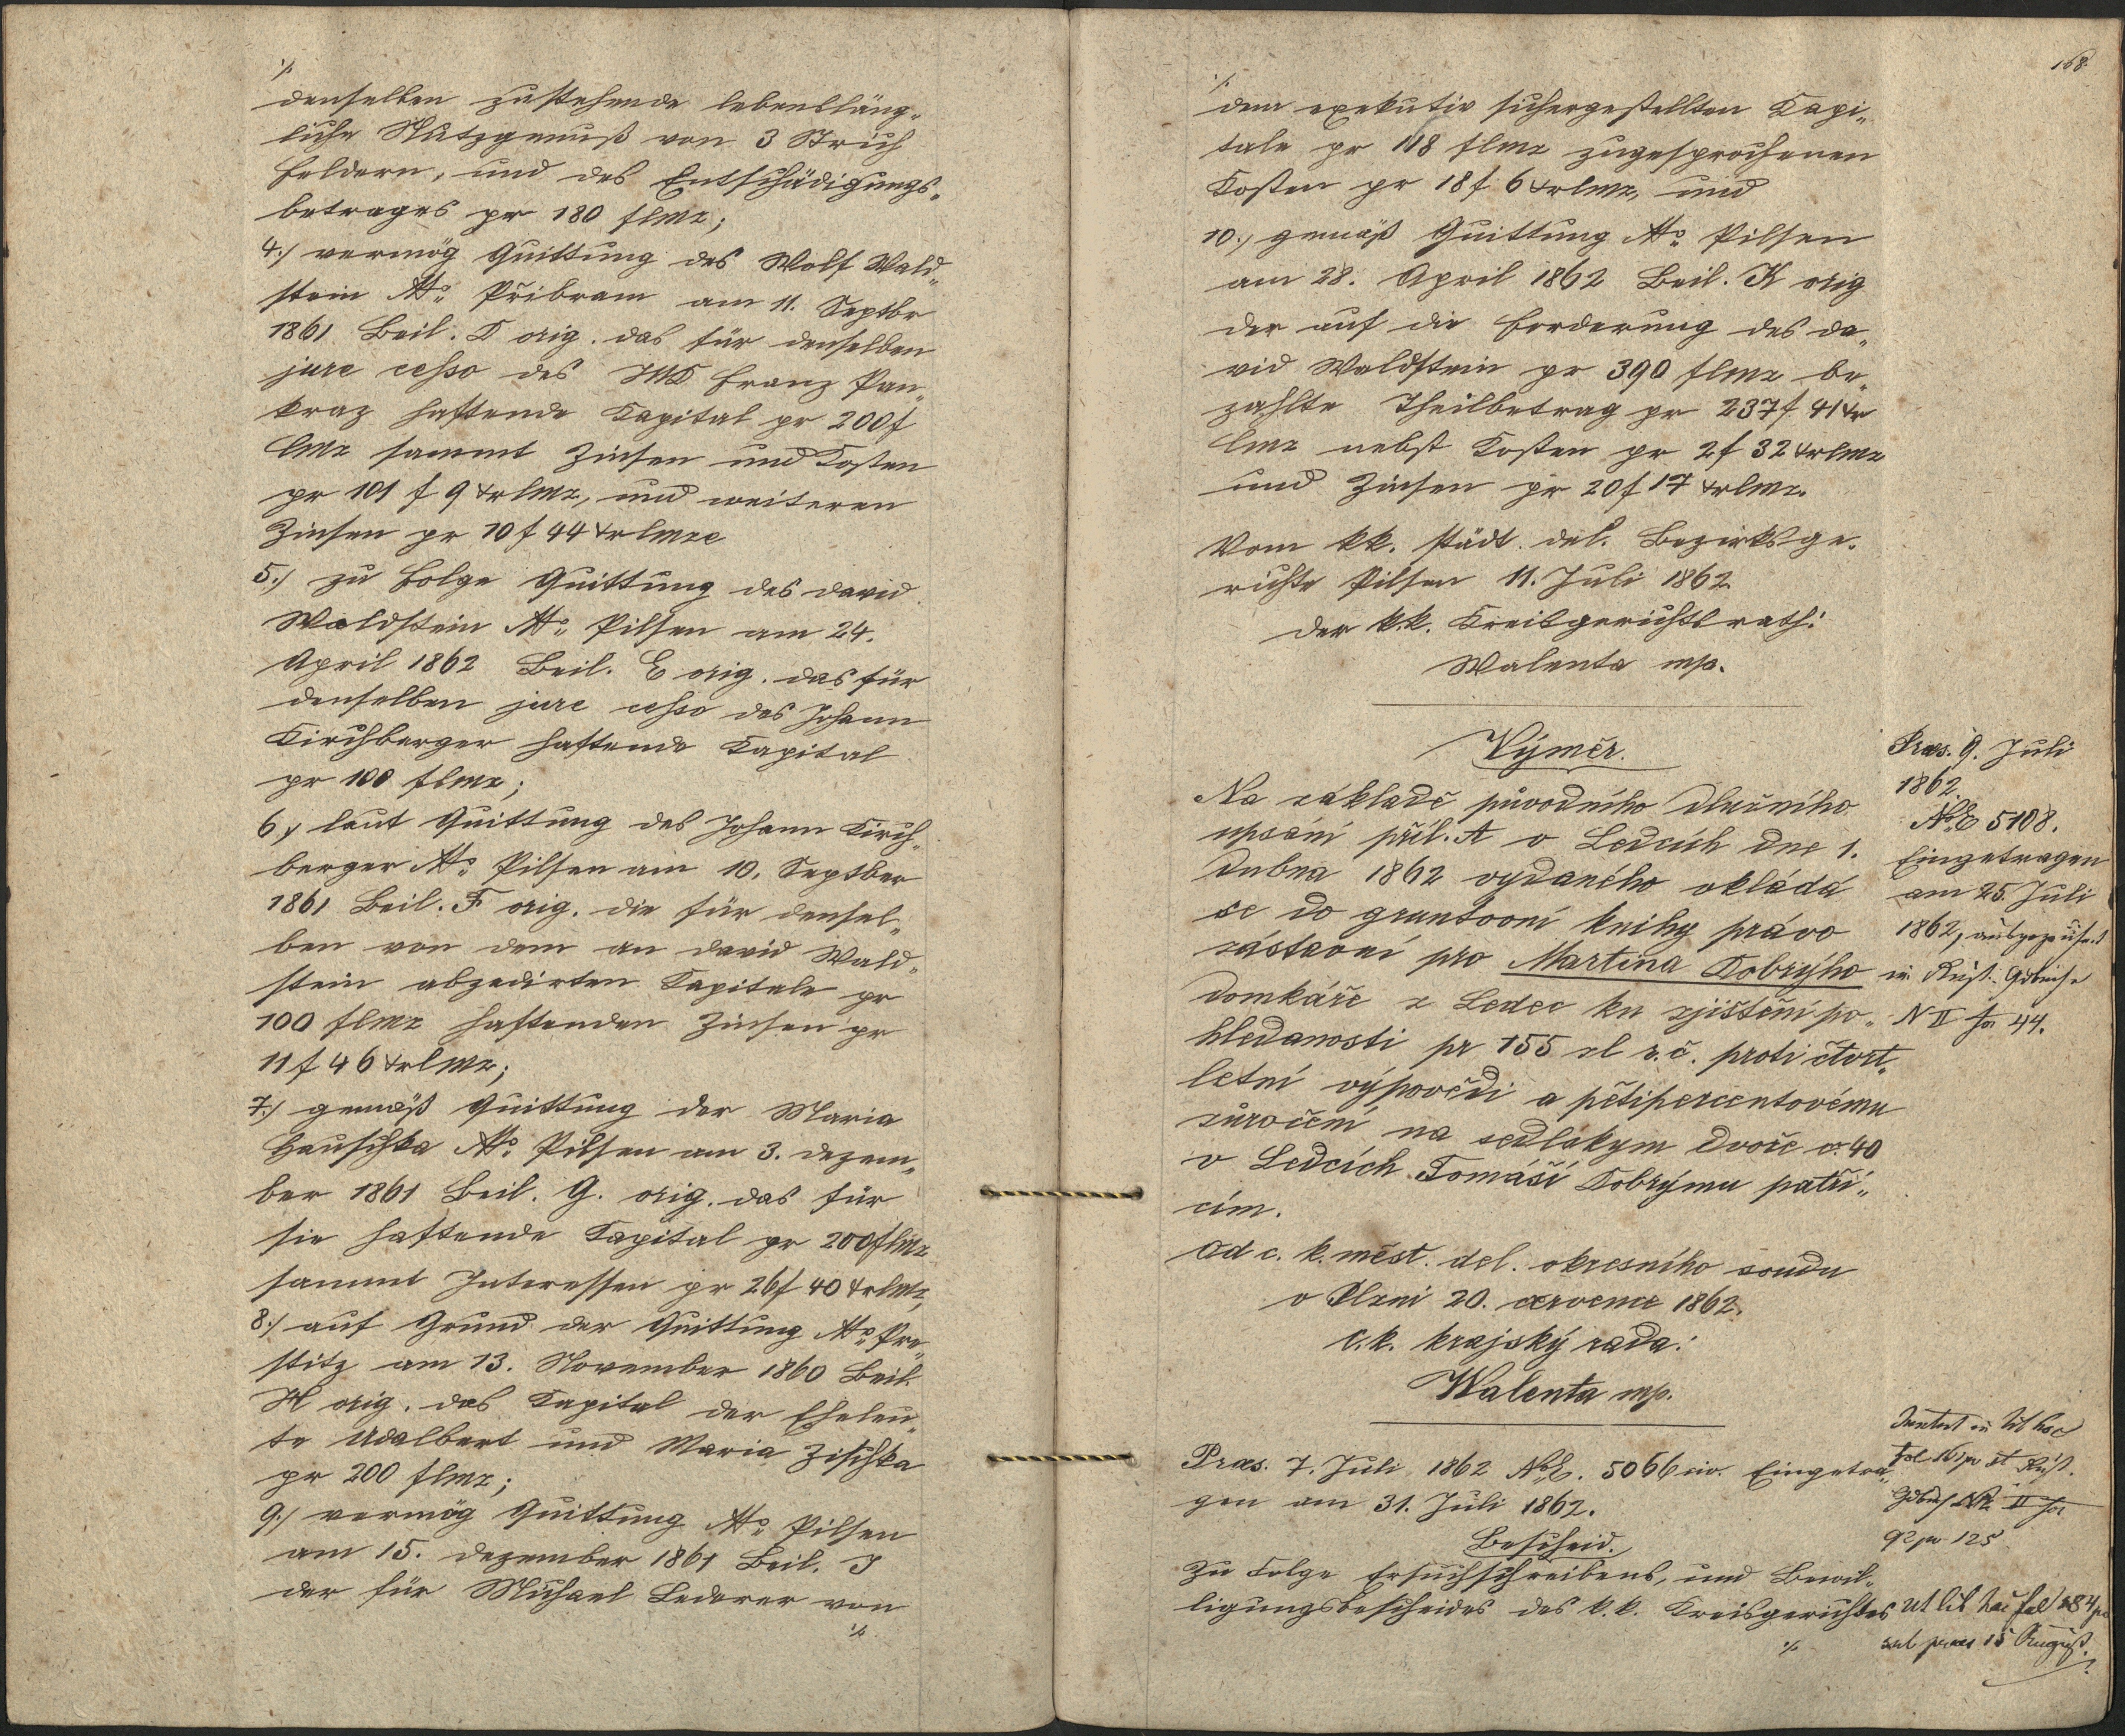 ./.
denselben zustehende lebensläng„
liche Nutzgenuß von 3 Strich
Feldern, und des Entschädigungs„
betrages pr 180 flmz;
4./ vermög Quittung des Wolf Wald„
stein dtto Přibram am 11. Septbr
1861 Beil. D orig. das für denselben
jure cesso des JUD Franz Pan„
kraz haftende Kapital pr 200 f
CMz sammt Zinsen und Kosten
pr 101 f 9 xrCMz, und weiteren
Zinsen pr 10 f 44 xrCMze
5./ zu Folge Quittung des David
Waldstein dtto Pilsen am 24.
April 1862 Beil. E orig. das für
denselben jure cesso des Johann
Kirchberger haftende Kapital
pr 100 flmz;
6./ laut Quittung des Johann Kirch„
berger dtto Pilsen am 10. Septber
1861 Beil. F orig. die für densel„
ben von dem an David Wald„
stein abzedirten Kapitale pr
100 flmz haftenden Zinsen pr
11 f 46 xrCMz;
7./ gemäß Quittung der Maria
Hauschka dtto Pilsen am 3. Dezem„
ber 1861 Beil. G. orig. das für
sie haftende Kapital pr 200 flmz
sammt Interessen pr 26 f 40 xrCMz,
8./ auf Grund der Quittung dtto Pre„
stitz am 13. November 1860 Beil.
H orig. das Kapital der Eheleu„
te Adalbert und Maria Zischka
pr 200 flmz;
9./ vermög Quittung dtto Pilsen
am 15. Dezember 1861 Beil. J
der für Michael Lederer von
./.
168.
./.
dem exekutiv sichergestellten Kapi„
tale pr 118 flmz zugesprochenen
Kosten pr 18 f 6 xrCMz, und
10./ gemäß Quittung dtto Pilsen
am 28. April 1862 Beil. K orig
der auf die Forderung des Da„
vid Waldstein pr 390 flmz be„
zahlte Theilbetrag pr 237 f 41 xr
CMz nebst Kosten pr 2 f 32 xrCMz
und Zinsen pr 20 f 17 xrCMz.
Vom kk. städt. del. Bezirksge„
richte Pilsen 11. Juli 1862
Der k.k. Kreisgerichtsrath:
Walenta mp.
Výměr.
Na základě původního dlužního
upsání příl. A v Ledcích dne 1.
dubna 1862 vydaného vkládá
se do gruntovní knihy právo
zástavní pro Martina Kobrýho
domkáře z Ledec ku zjištění po„
hledanosti pr 155 zl r.č. proti čtvrt„
letní výpovědi a pětipercentovému
zúročení na sedlskym dvoře č. 40
v Ledcích Tomáši Kobrýmu patří„
cím.
Od c. k. měst. del. okresního soudu
v Plzni 20. července 1862.
C.k. krajský rada:
Walenta mp.
Præs. 9. Juli
1862.
NoE 5108.
Eingetragen
am 25. Juli
1862, ausgezeichnet
in Rust. Gdbuche
N II fol 44.
Præs. 7. Juli 1862 NoE. 5066 civ. Eingetra„
gen am 31. Juli 1862.
Bescheid.
Zu Folge Ersuchschreibens, und Bewil„
ligungsbescheides des k.k. Kreisgerichtes
./.
lib hoc
fol
Gdbuch No II fol
125
Ut lib hoc fol 284
præs 15 August.